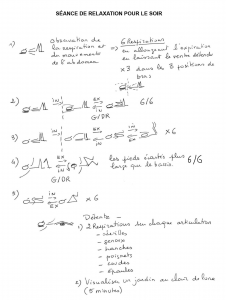 SÉANCE DE RELAXATION POUR LE SOIR
1) observation de la respiration et du mouvement de l'abdomen
=> 6 Respirations en allongeant l'expiration en laissant le ventre détendu
x 3 dans les 3 positions de bras
2) IN EX G/DR 6/6
3) EX IN x 6
4) EX IN G/DR les pieds écartés plus large que le bassin. 6/6
5) IN EX x 6
Détente -
1) 2 Respirations sur chaque articulation
- chevilles
- genoux
- hanches
- poignets
- coudes
- épaules
2) Visualiser un jardin au clair de lune
(5 minutes)